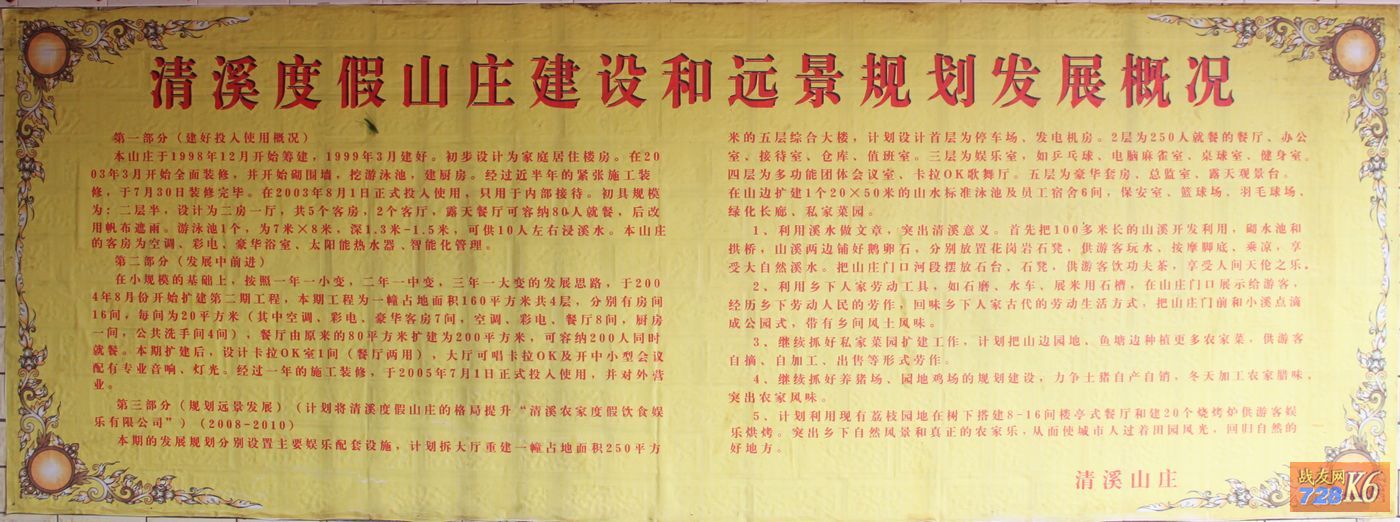 清溪度假山庄建设和远景规划发展概况
第一部分（建好投入使用概况）
本山庄于1998年12月开始筹建，1999年3月建好。初步设计为家庭居住楼房。在20
03年3月开始全面装修，并开始砌围墙，挖游泳池，建厨房。经过近半年的紧张施工装
修，于7月30日装修完毕。在2003年8月1日正式投入使用，只用于内部接待。初具规模
为：二层半，设计为二房一厅，共5个客房，2个客厅，露天餐厅可容纳80人就餐，后改
用帆布遮雨。游泳池1个，为7米×8米，深1.3米-1.5米，可供10人左右浸溪水。本山庄
的客房为空调、彩电、豪华浴室、太阳能热水器、智能化管理。
第二部分（发展中前进）
在小规模的基础上，按照一年一小变，二年一中变，三年一大变的发展思路，于200
4年8月份开始扩建第二期工程，本期工程为一幢占地面积160平方米共4层，分别有房间
16间，每间为20平方米（其中空调、彩电、豪华客房7间，空调、彩电、餐厅8间，厨房
一间，公共洗手间4间），餐厅由原来的80平方米扩建为200平方米，可容纳200人同时
就餐。本期扩建后，设计卡拉OK室1间（餐厅两用），大厅可唱卡拉OK及开中小型会议
配有专业音响、灯光。经过一年的施工装修，于2005年7月1日正式投入使用，并对外营
业。
第三部分（规划远景发展）（计划将清溪度假山庄的格局提升“清溪农家度假饮食娱
乐有限公司”）（2008-2010）
本期的发展规划分别设置主要娱乐配套设施，计划拆大厅重建一幢占地面积250平方
米的五层综合大楼，计划设计首层为停车场、发电机房。2层为250人就餐的餐厅、办公
室、接待室、仓库、值班室。三层为娱乐室，如乒乓球、电脑麻雀室、桌球室、健身室。
四层为多功能团体会议室、卡拉OK歌舞厅。五层为豪华套房、总监室、露天观景台。
在山边扩建1个20×50米的山水标准泳池及员工宿舍6间，保安室、篮球场、羽毛球场、
绿化长廊、私家菜园。
1、利用溪水做文章，突出清溪意义。首先把100多米长的山溪开发利用，砌水池和
拱桥，山溪两边铺好鹅卵石，分别放置花岗岩石凳，供游客玩水、按摩脚底、乘凉，享
受大自然溪水。把山庄门口河段摆放石台、石凳，供游客饮功夫茶，享受人间天伦之乐。
2、利用乡下人家劳动工具，如石磨、水车、展米用石槽，在山庄门口展示给游客，
经历乡下劳动人民的劳作，回味乡下人家古代的劳动生活方式，把山庄门前和小溪点滴
成公园式，带有乡间风土风味。
3、继续抓好私家菜园扩建工作，计划把山边园地、鱼塘边种植更多农家菜，供游客
自摘、自加工、出售等形式劳作。
4、继续抓好养猪场、园地鸡场的规划建设，力争土猪自产自销，冬天加工农家腊味，
突出农家风味。
5、计划利用现有荔枝园地在树下搭建8-16间楼亭式餐厅和建20个烧烤炉供游客娱
乐烘烤。突出乡下自然风景和真正的农家乐，从而使城市人过着田园风光，回归自然的
好地方。
清溪山庄
战友网
728
K6